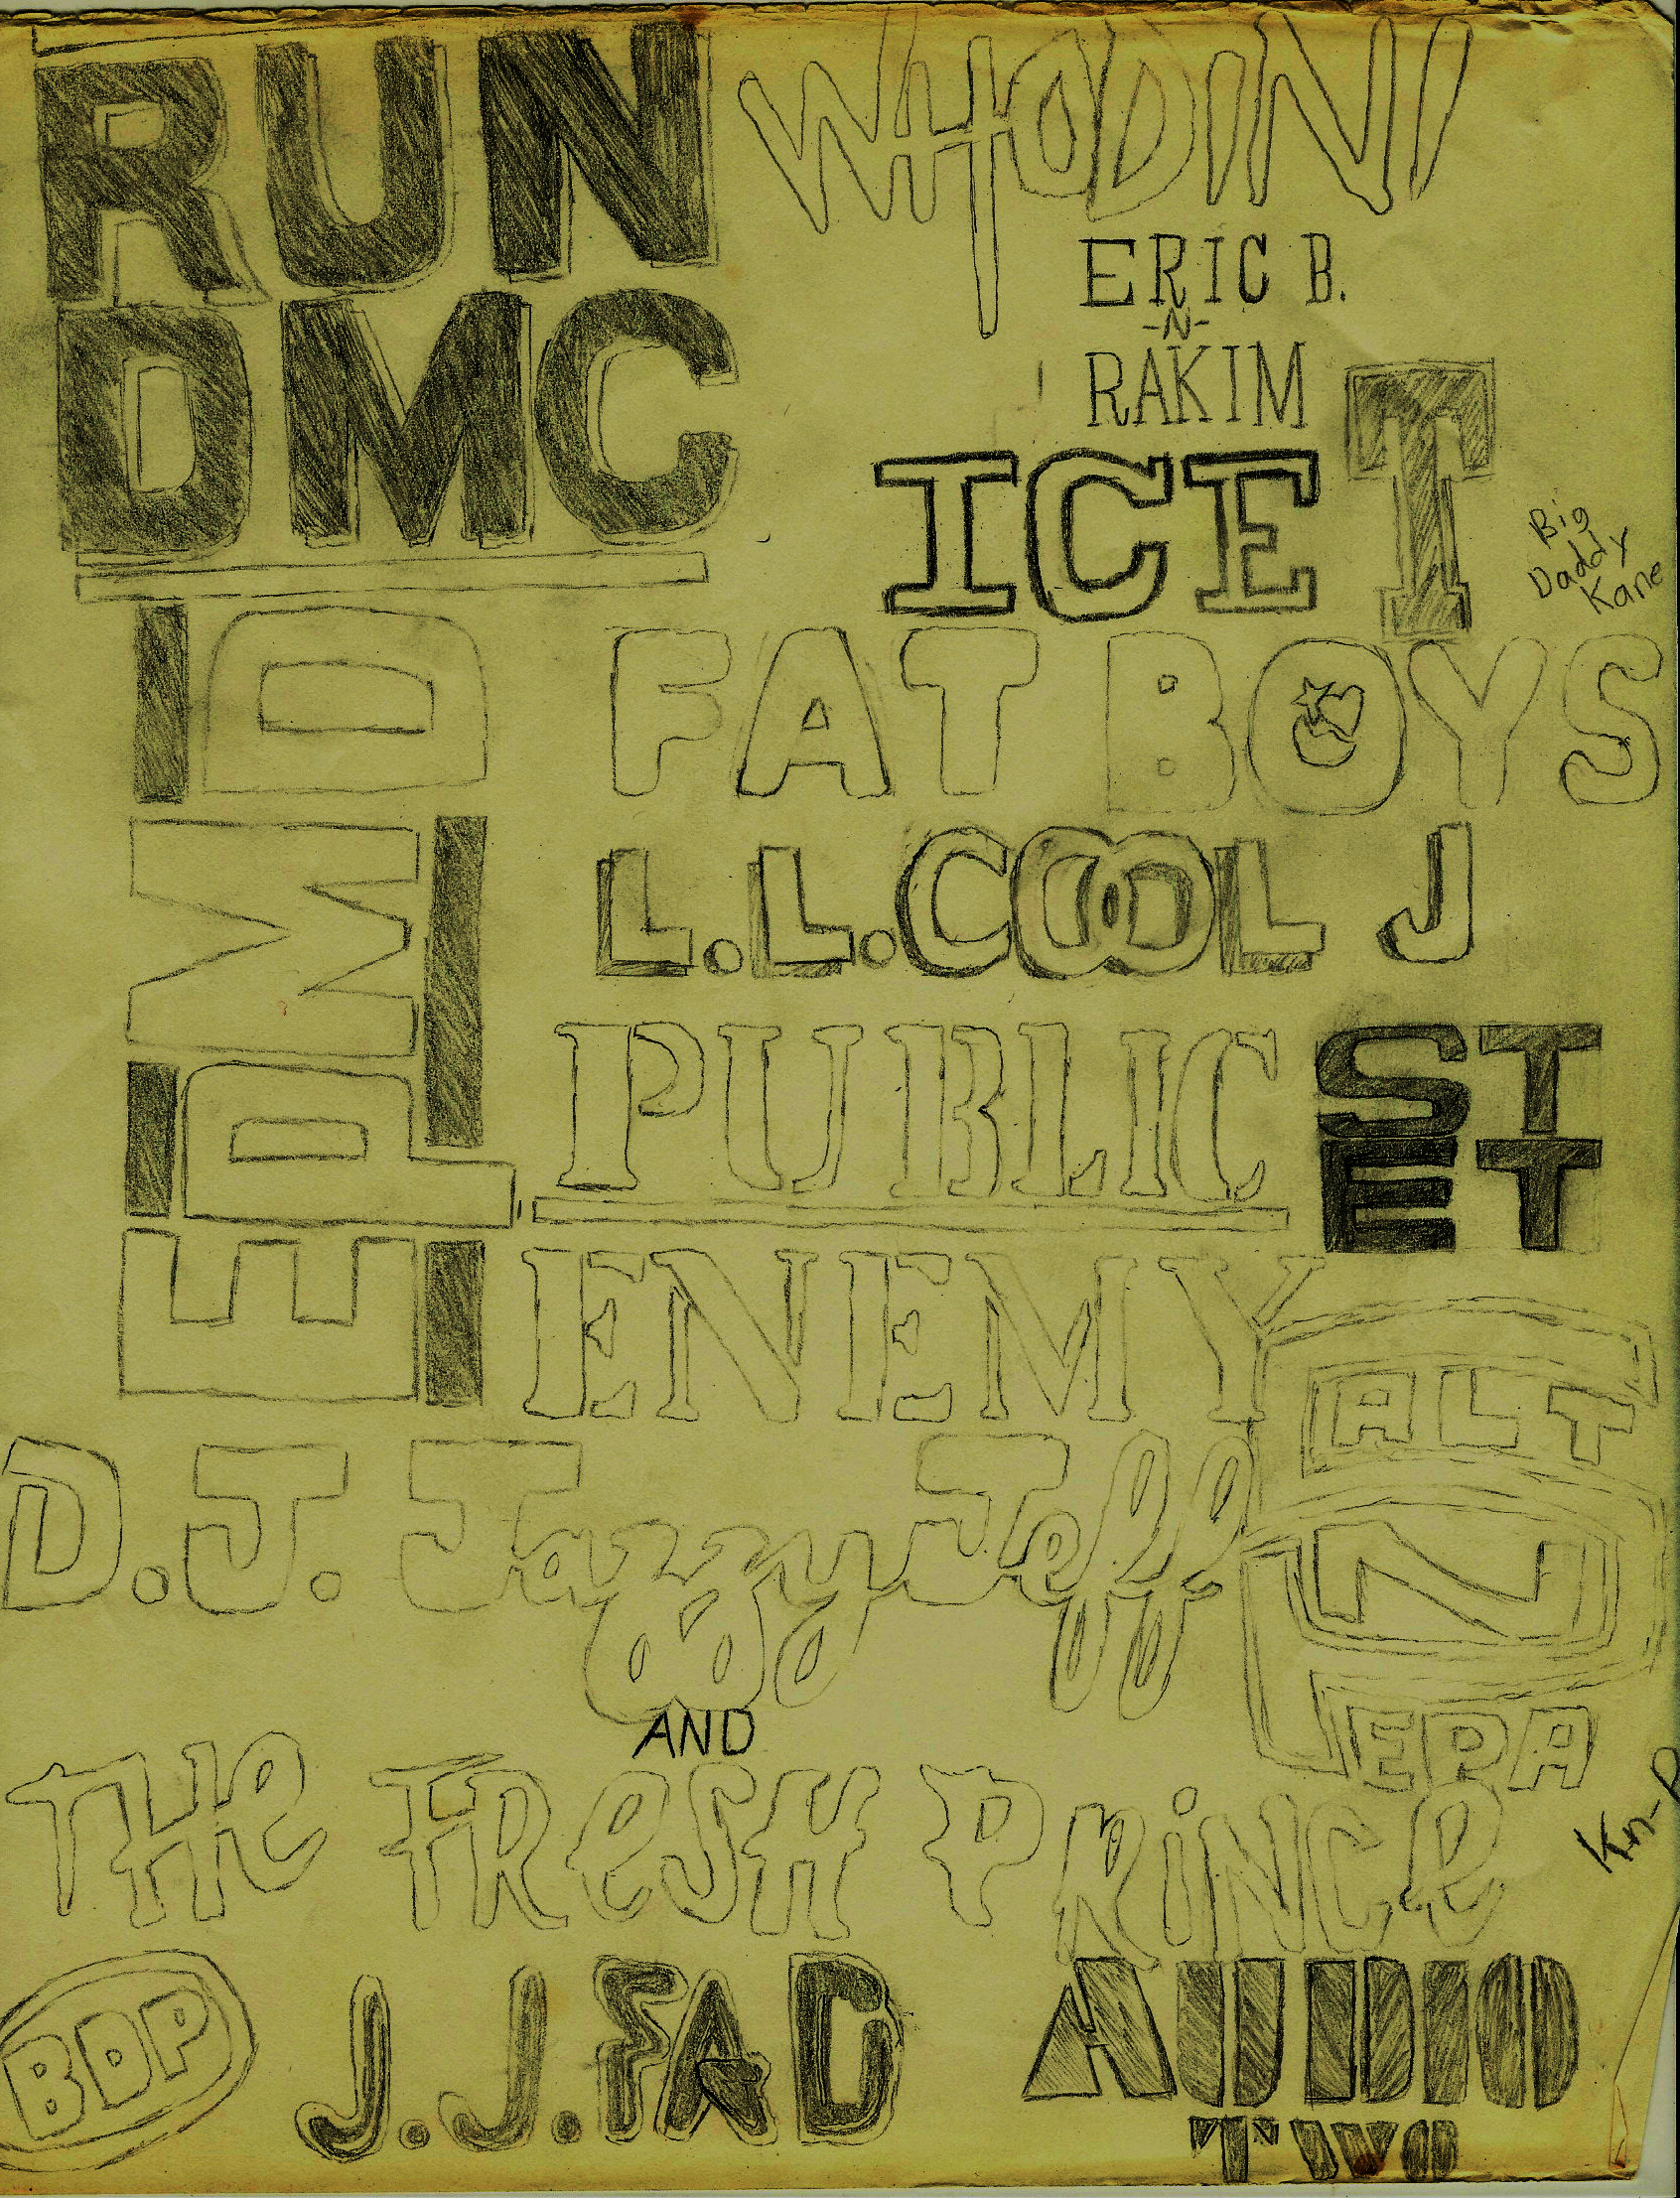 RUN
DMC
WHODINI
ERIC B.
-N-
RAKIM
ICE T
Big
Daddy
Kane
EPMD
FAT BOYS
L.L.COOL J
PUBLIC
ENEMY
ST
ET
SALT
N
PEPA
D.J. Jazzy Jeff
AND
THe FResH PRiNCe
Kn-R
BDP
J.J.FAD
AUDIO
TWO